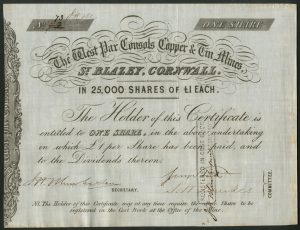 No.
ONE SHARE
The West Par Consols Copper & Tin Mines
ST BLAZEY, CORNWALL.
IN 25,000 SHARES OF £1 EACH.
The Holder of this Certificate is
entitled to ONE SHARE, in the above undertaking
on which £1 per Share has been paid, and
to the Dividends thereon.
SECRETARY.
COMMITTEE.
NB. The Holder of this Certificate may at any time require the Share to be
registered in the Cost Book at the Office of the Mine.